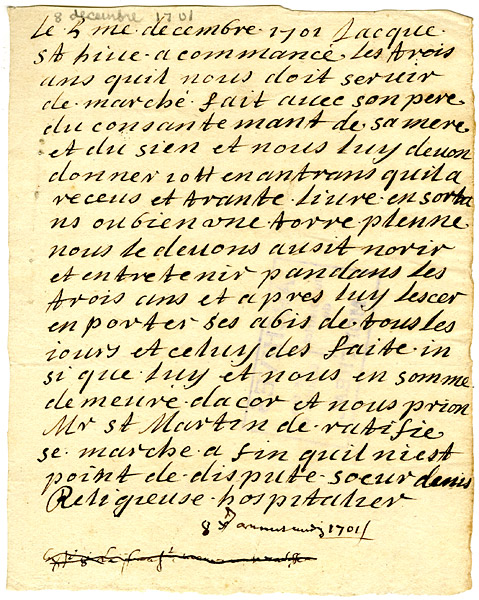 8 decembre 1701
le 8 me decembre 1701 Jacque
st hiue a commancé les trois
ans quil nous doit seruir
de marché fait auec son pere
du consantemant de sa mere
et du sien et nous luy deuon
donner 10tt en antrans quil a
receus et trante liure en sorta
ns ou bien vne torre plenne
nous le deuons ausit norir
et entretenir pandans les
trois ans et apres luy lescer
en porter ses abis de tous les
iours et celuy des faite in
si que luy et nous en somme
demeure dacor et nous prion
Mr st Martin de ratifie
se marche a fin quil niest
point de dispute soeur denis
Religieuse hospitalier
8 1701